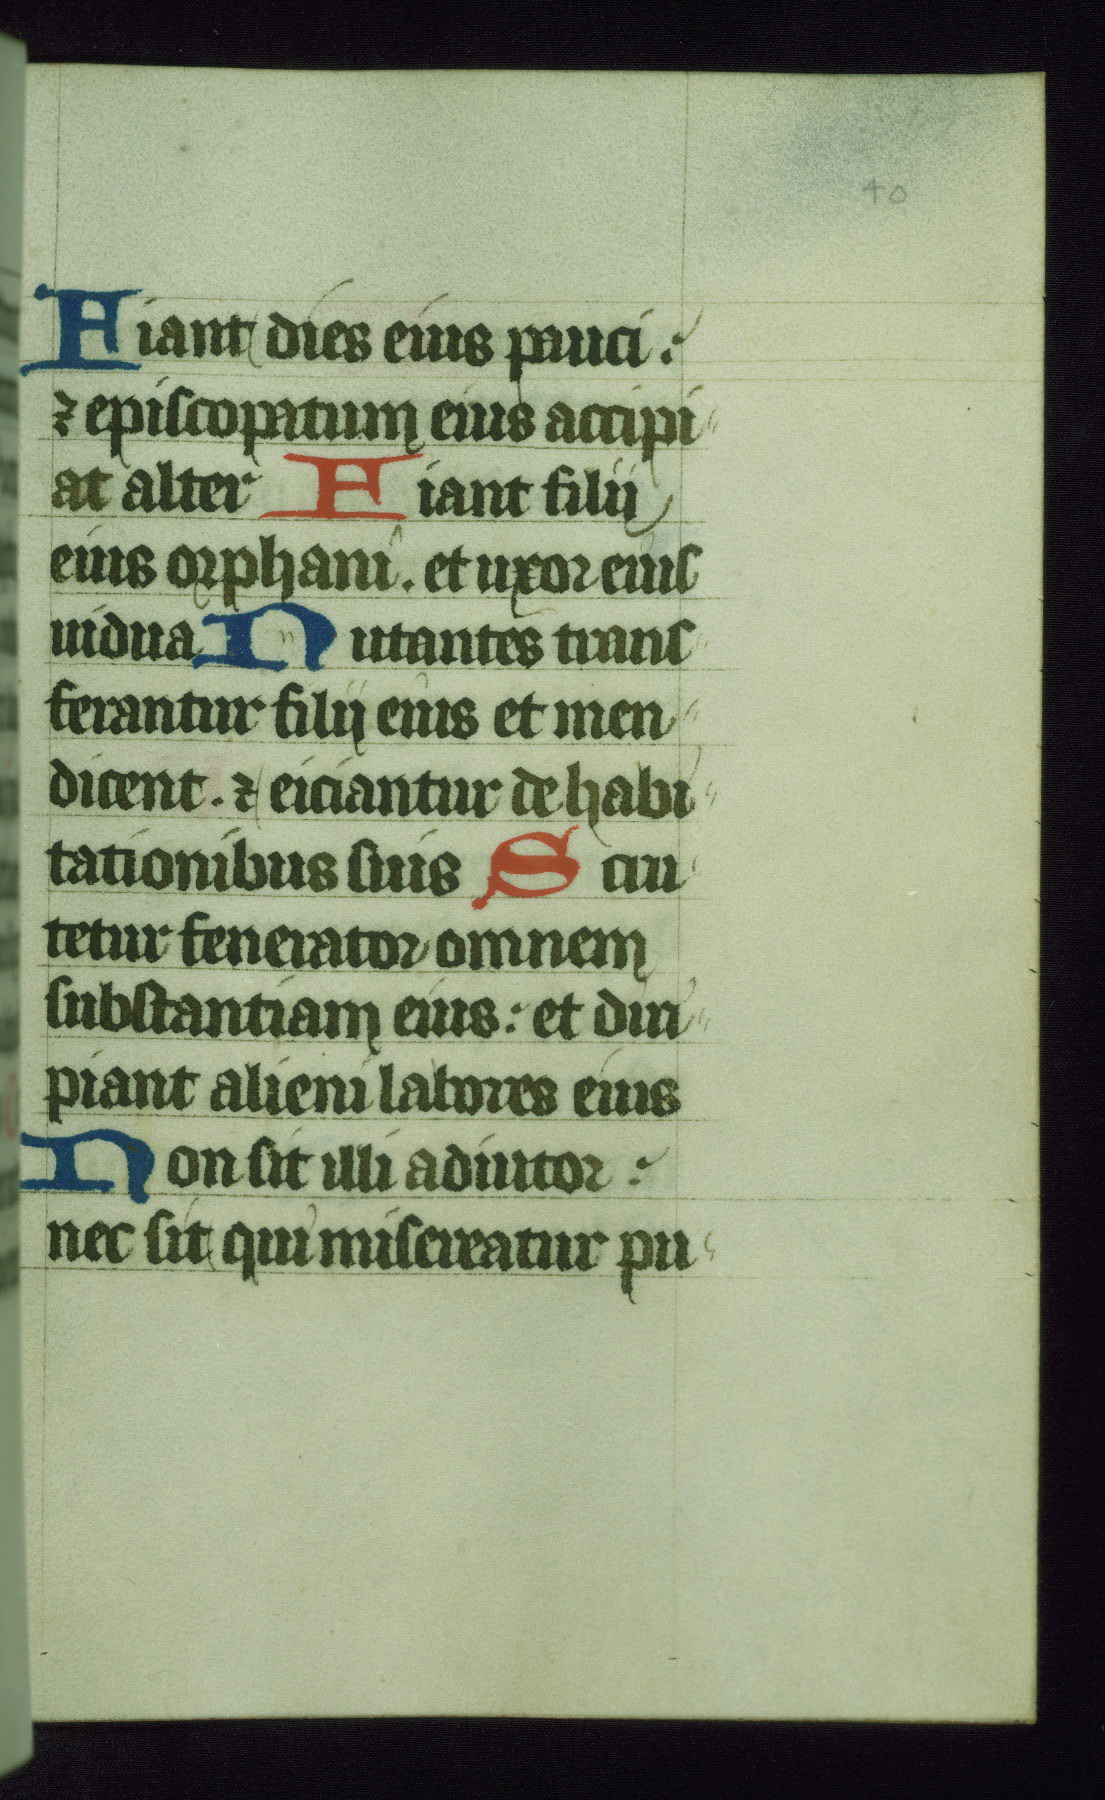 40
Fiant dies eius pauci :
⁊ episcopatum eius accipi
at alter Fiant filii
eius orphani . et uxor eius
uidua Nutantes trans
ferantur filij eius et men
dicent . ⁊ eiciantur de habi
tationibus suis Scru
tetur fenerator omnem
substantiam eius : et diri
piant alieni labores eius
Non sit illi adiutor :
nec sit qui misereatur pu